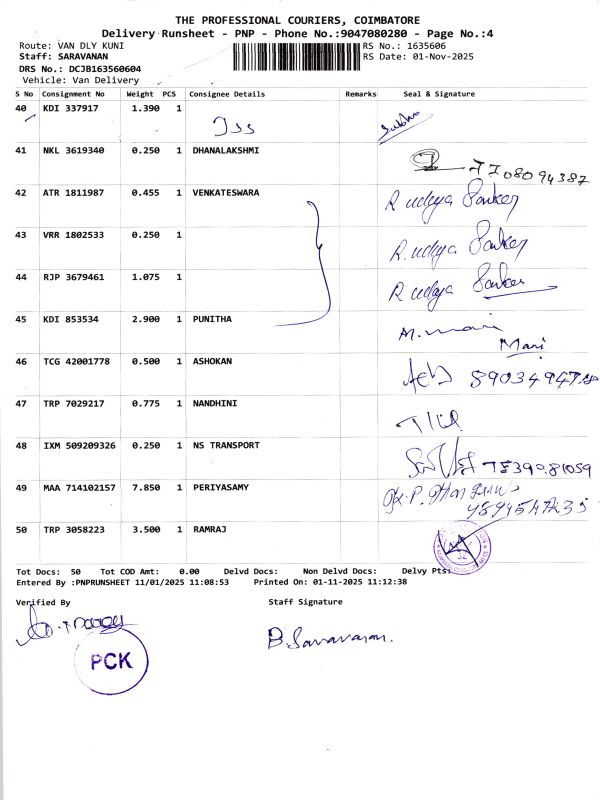 THE PROFESSIONAL COURIERS, COIMBATORE
Delivery Runsheet - PNP - Phone No.:9047080280 - Page No.:4
Route: VAN DLY KUNI RS No.: 1635606
Staff: SARAVANAN RS Date: 01-Nov-2025
DRS No.: DCJB163560604
Vehicle: Van Delivery
S No Consignment No Weight PCS Consignee Details Remarks Seal & Signature
40 KDI 337917 1.390 1
41 NKL 3619340 0.250 1 DHANALAKSHMI
42 ATR 1811987 0.455 1 VENKATESWARA R. udaya Sanker
43 VRR 1802533 0.250 1 R. udaya Sanker
44 RJP 3679461 1.075 1 R udaya Sanker
45 KDI 853534 2.900 1 PUNITHA M. mani
Mani
46 TCG 42001778 0.500 1 ASHOKAN
47 TRP 7029217 0.775 1 NANDHINI
48 IXM 509209326 0.250 1 NS TRANSPORT
49 MAA 714102157 7.850 1 PERIYASAMY
50 TRP 3058223 3.500 1 RAMRAJ
Tot Docs: 50 Tot COD Amt: 0.00 Delvd Docs: Non Delvd Docs: Delvy Pts:
Entered By :PNPRUNSHEET 11/01/2025 11:08:53 Printed On: 01-11-2025 11:12:38
Verified By Staff Signature
B. Saravanan.
PCK